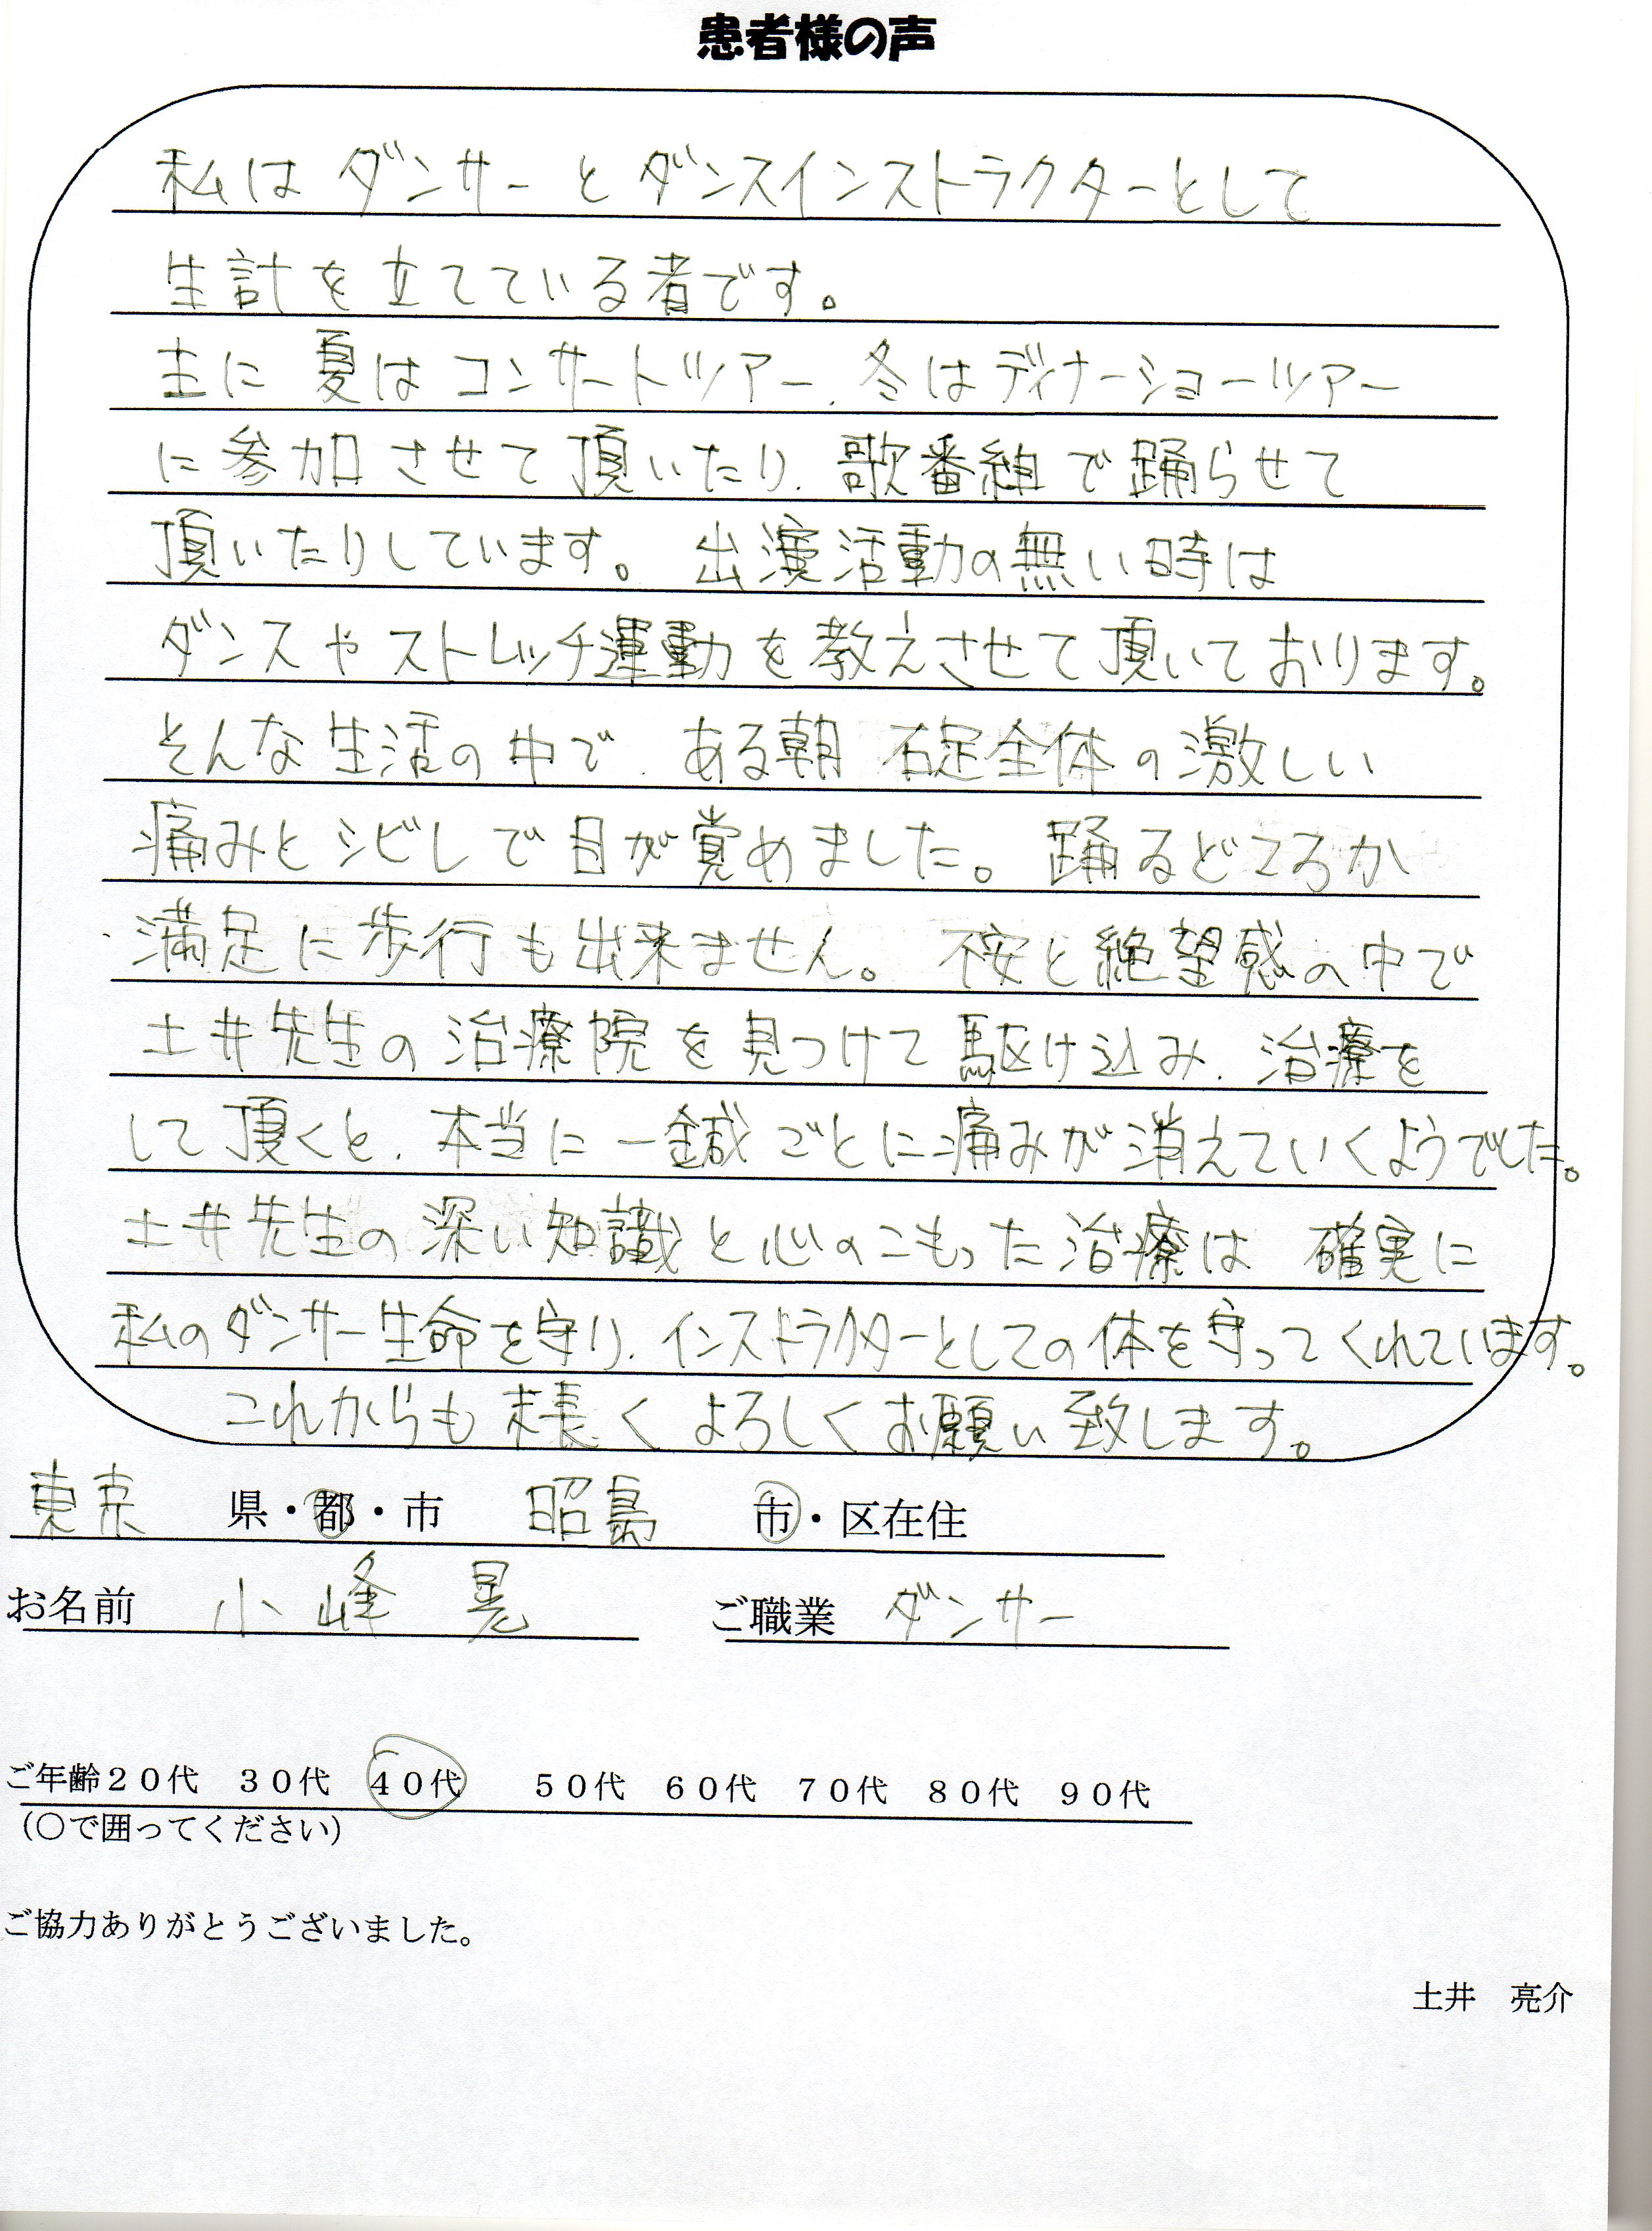 患者様の声
私は ダンサーと ダンスインストラクターとして
生計を立てている者です。
主に 夏は コンサートツアー、冬は ディナーショーツアー
に参加させて頂いたり、歌番組で踊らせて
頂いたりしています。 出演活動の無い時は
ダンスやストレッチ運動を教えさせて頂いております。
そんな生活の中で、ある朝 右足全体の激しい
痛みとシビレで目が覚めました。 踊るどころか
満足に歩行も出来ません。 不安と絶望感の中で
土井先生の治療院を見つけて駆け込み、治療を
して頂くと、本当に一鍼ごとに痛みが消えていくようでした。
土井先生の深い知識と心のこもった治療は 確実に
私のダンサー生命を守り、インストラクターとしての体を守ってくれています。
これからも末長くよろしくお願い致します。
東京 県・都・市 昭島 市・区在住
お名前 小峰 晃 ご職業 ダンサー
ご年齢２０代 ３０代 ４０代 ５０代 ６０代 ７０代 ８０代 ９０代
（〇で囲ってください）
ご協力ありがとうございました。
土井 亮介